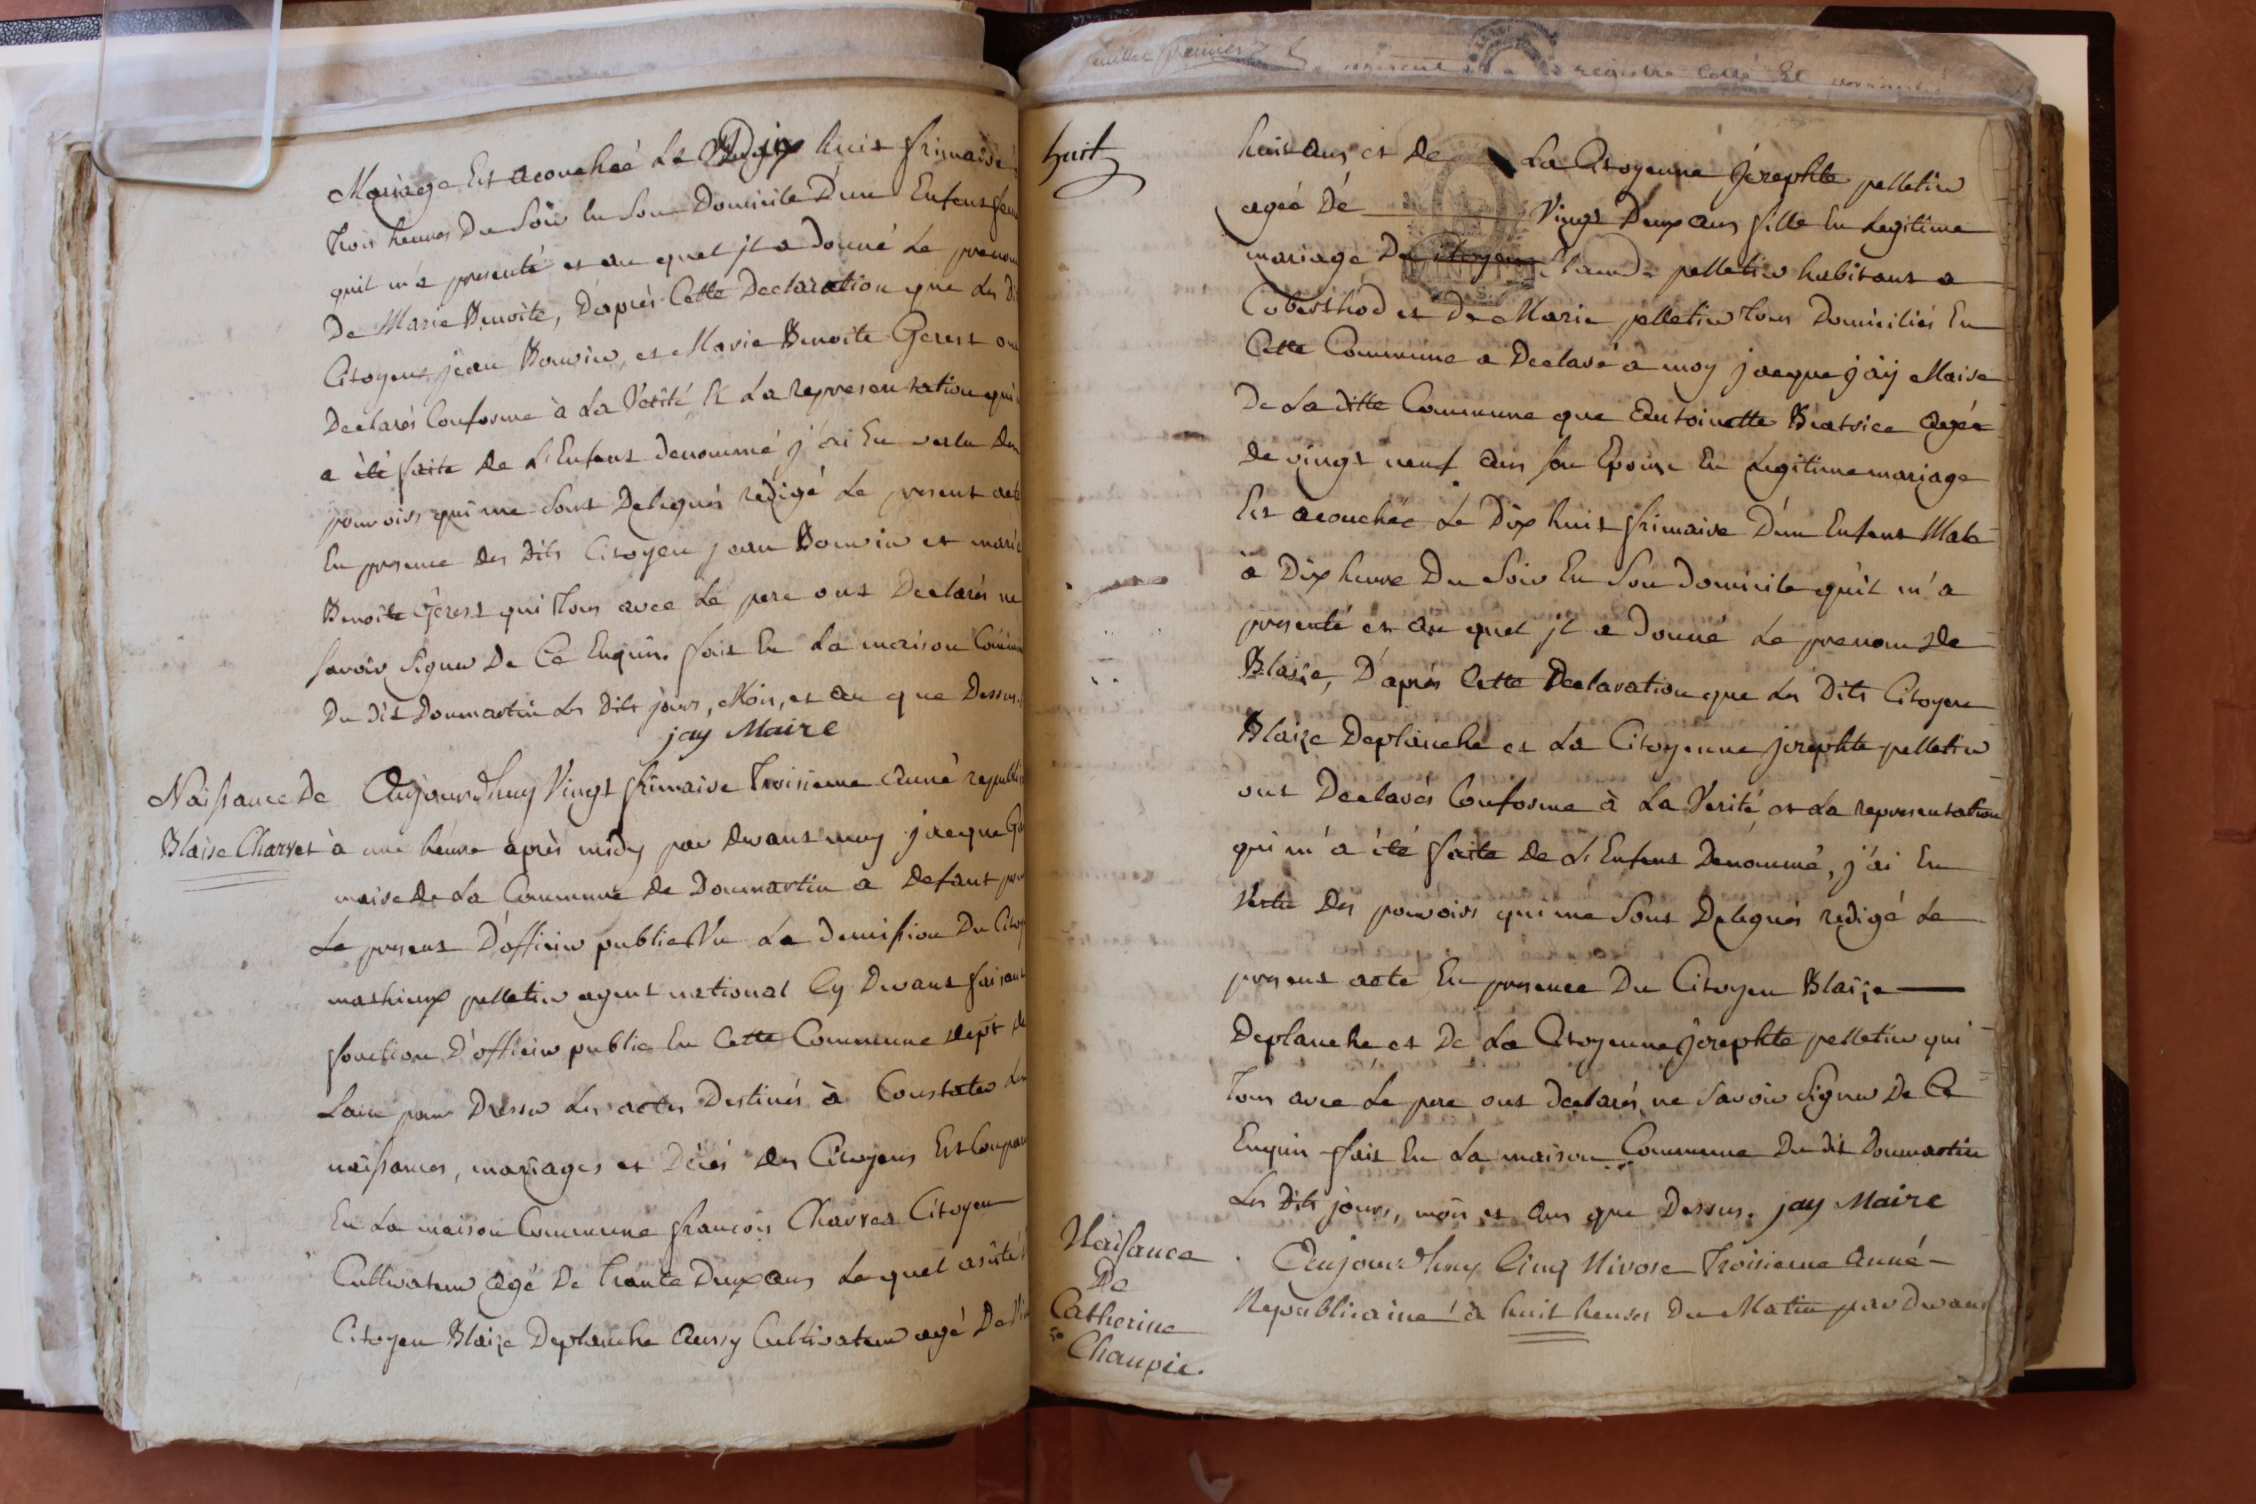 Mariage Est acouchéé Le Dix huit frimaire
Trois heures Du Soir En Son Domicile D'un Enfent
quil m'a presenté et au quel jl a donné Le prenom
De Marie Benoite, D'aprés Cette Declaration que Les
Citoyens jean Bouvier, et Marie Benoite Gerest
Declarés Conforme à La Verité Et La representation
a été faite de L'Enfent denommé j'ai En vertu Des
pouvoirs qui me Sont Delegués redigé Le present acte
En presence des dits Citoyen jean Bouvier et marie
Benoite Gerest qui Tous avec Le pere ont Declarés ne
Savoir Signer De Ce Enquis. fait En La maison
Du dit Dommartin Les dits jours, Mois, et an que Dessus.
jay Maire
Naissance De
Blaise Charvet
Aujourd'huy Vingt frimaire Troisieme anné
à une heure après midy par devant moy jacque
maire De La Commune de Dommartin a defaut
Le present D'officier public Vu La demission Du
mathieux pelletier agent national Cy Devant faisant
fonction D'officier public En Cette Commune
pour Dresser Les actes Destinés à Constater Les
naissances, mariages et Décés des Citoyens Est
En La maison Commune francois Charvet Citoyen
Cultivateur agé De Trante Deux ans Lequel
Citoyen Blaize Deplanche aussy Cultivateur agé De
huit
huit ans et De La Citoyenne Josephte pelletier
ageé Dé Vingt Deux ans fille En Legitime
mariage De Claude pelletier habitant a
et De Marie pelletier Tous Domiciliés En
Cette Commune a Declaré a moy jacque jaÿ Maire
De La ditte Commune que Antoinette Beatrice agée
de vingt neuf ans son Epouse En Legitime mariage
Est acouchée Le Dix huit frimaire D'un Enfent Male
à Dix heure Du Soir En Son domicile qu'il m'a
presenté et au quel jl a Donné Le prenom De
Blaise, D'aprés Cette Declaration que Les Dits Citoyen
Blaize Deplanche et La Citoyenne josephte pelletier
ont Declarés Conforme à La Verité et La representation
qui m'a été faite De L'Enfent Denommé, j'ai En
Vertu Des pouvoirs qui me Sont Delegués redigé Le
present acte En presence Du Citoyen Blaize
Deplanche et De La Citoyenne josephte pelletier qui
Tous avec Le pere ont declarés ne Savoir Signer De Ce
Enquis fait En La maison Commune Du dit Dommartin
Les Dits jours, mois et ans que Dessus. jay Maire
Naissance
De
Catherine
Chaupie.
Aujourd'huy Cinq Nivose Troisieme anné
Republicaine à huit heures Du Matin par Devant